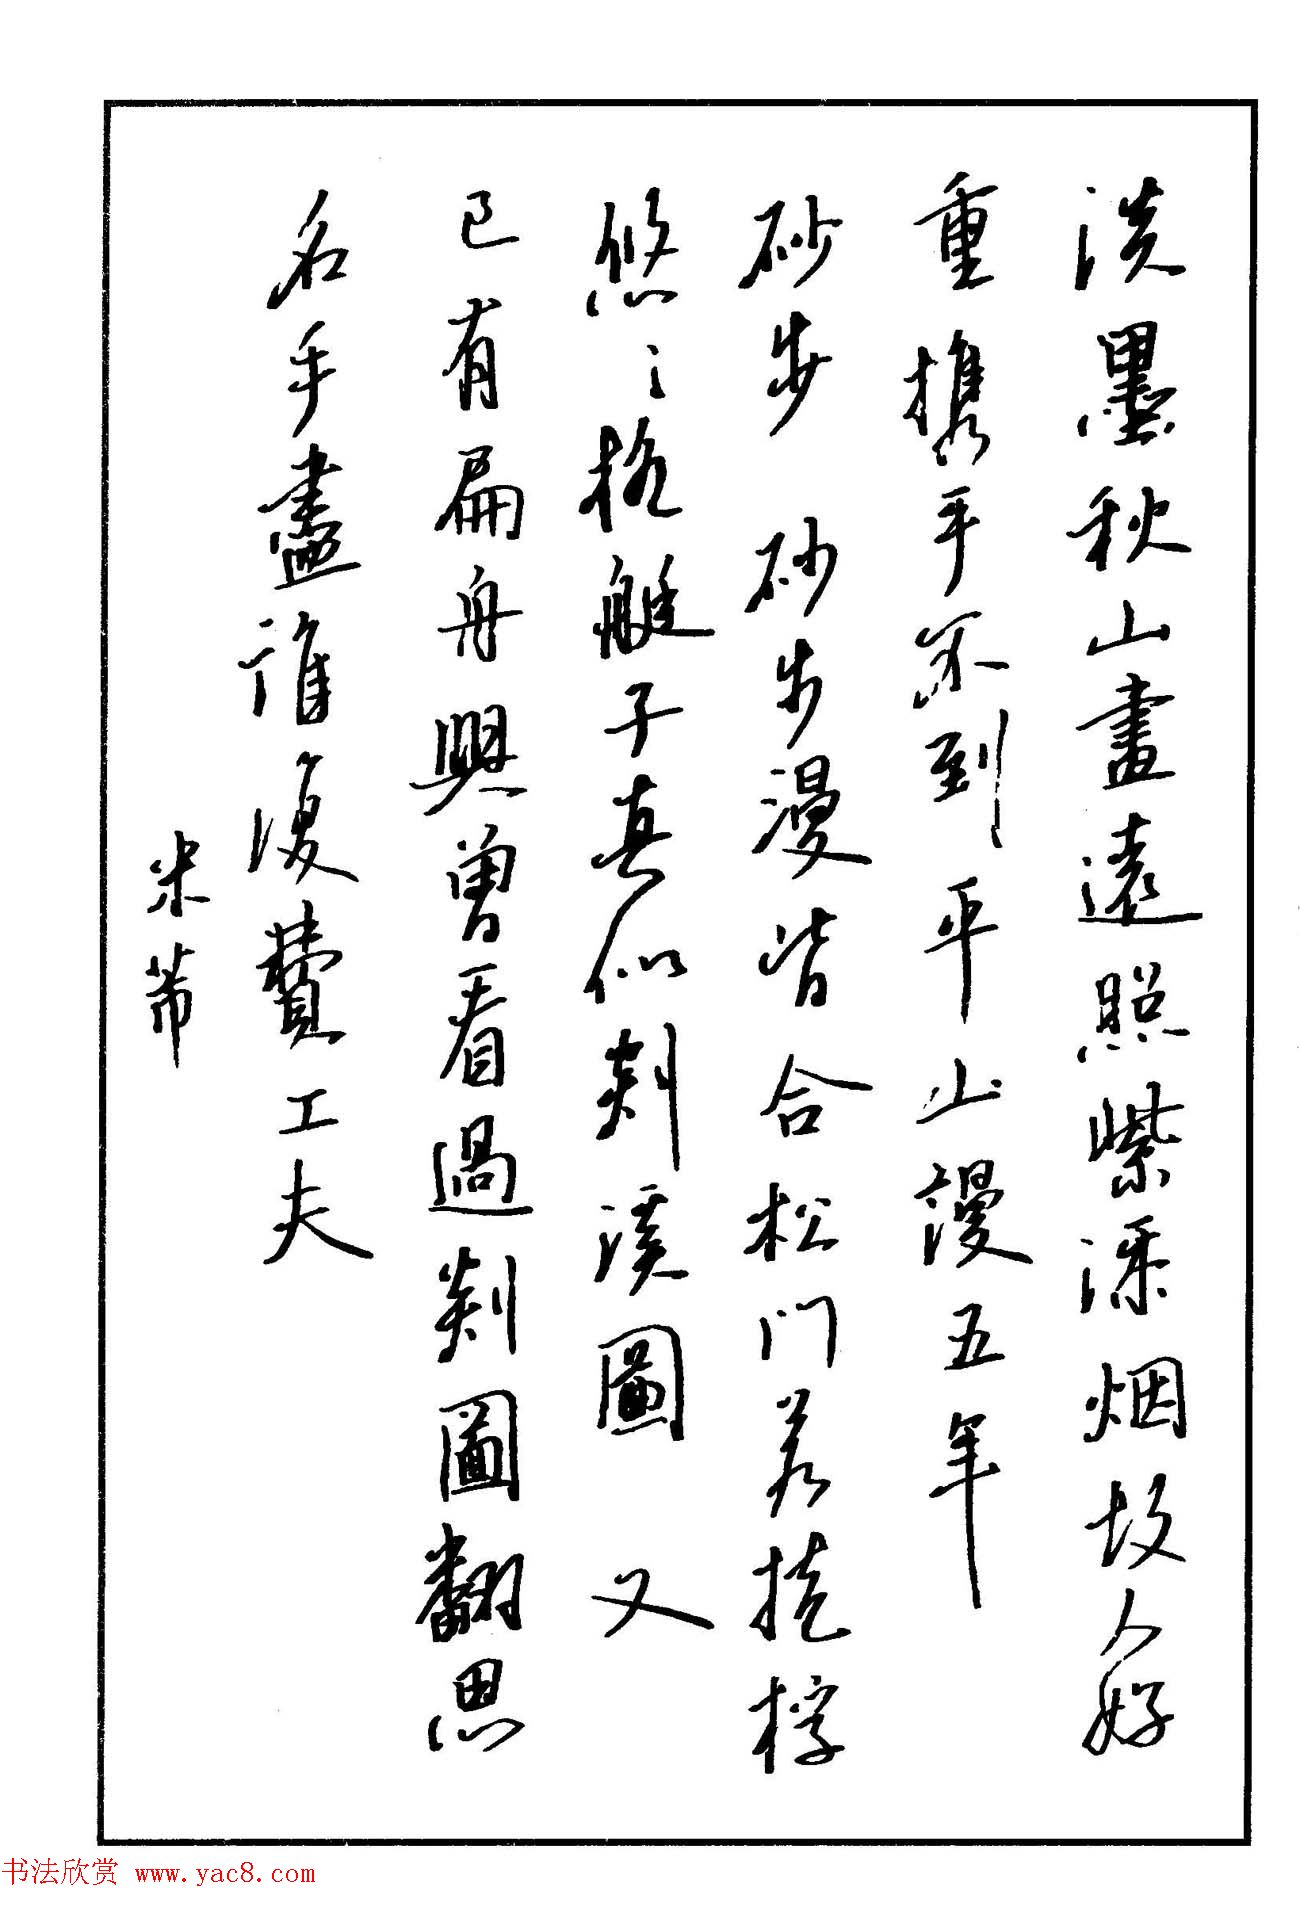 淡墨秋山畫遠照紫深烟故人好
重携手不到平山謾五年
砂步 砂步漫皆合松門若掩桴
悠〻搖艇子真似剡溪圖 又
已有扁舟興曾看過剡圖翻思
名手盡誰復費工夫
米芾
书法欣赏 www.yac8.com